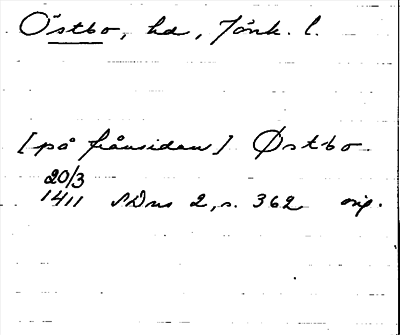 Östbo, hd, Jönk. l.
[på frånsidan] Østbo
20/3
1411 SDns 2, s. 362 orig.